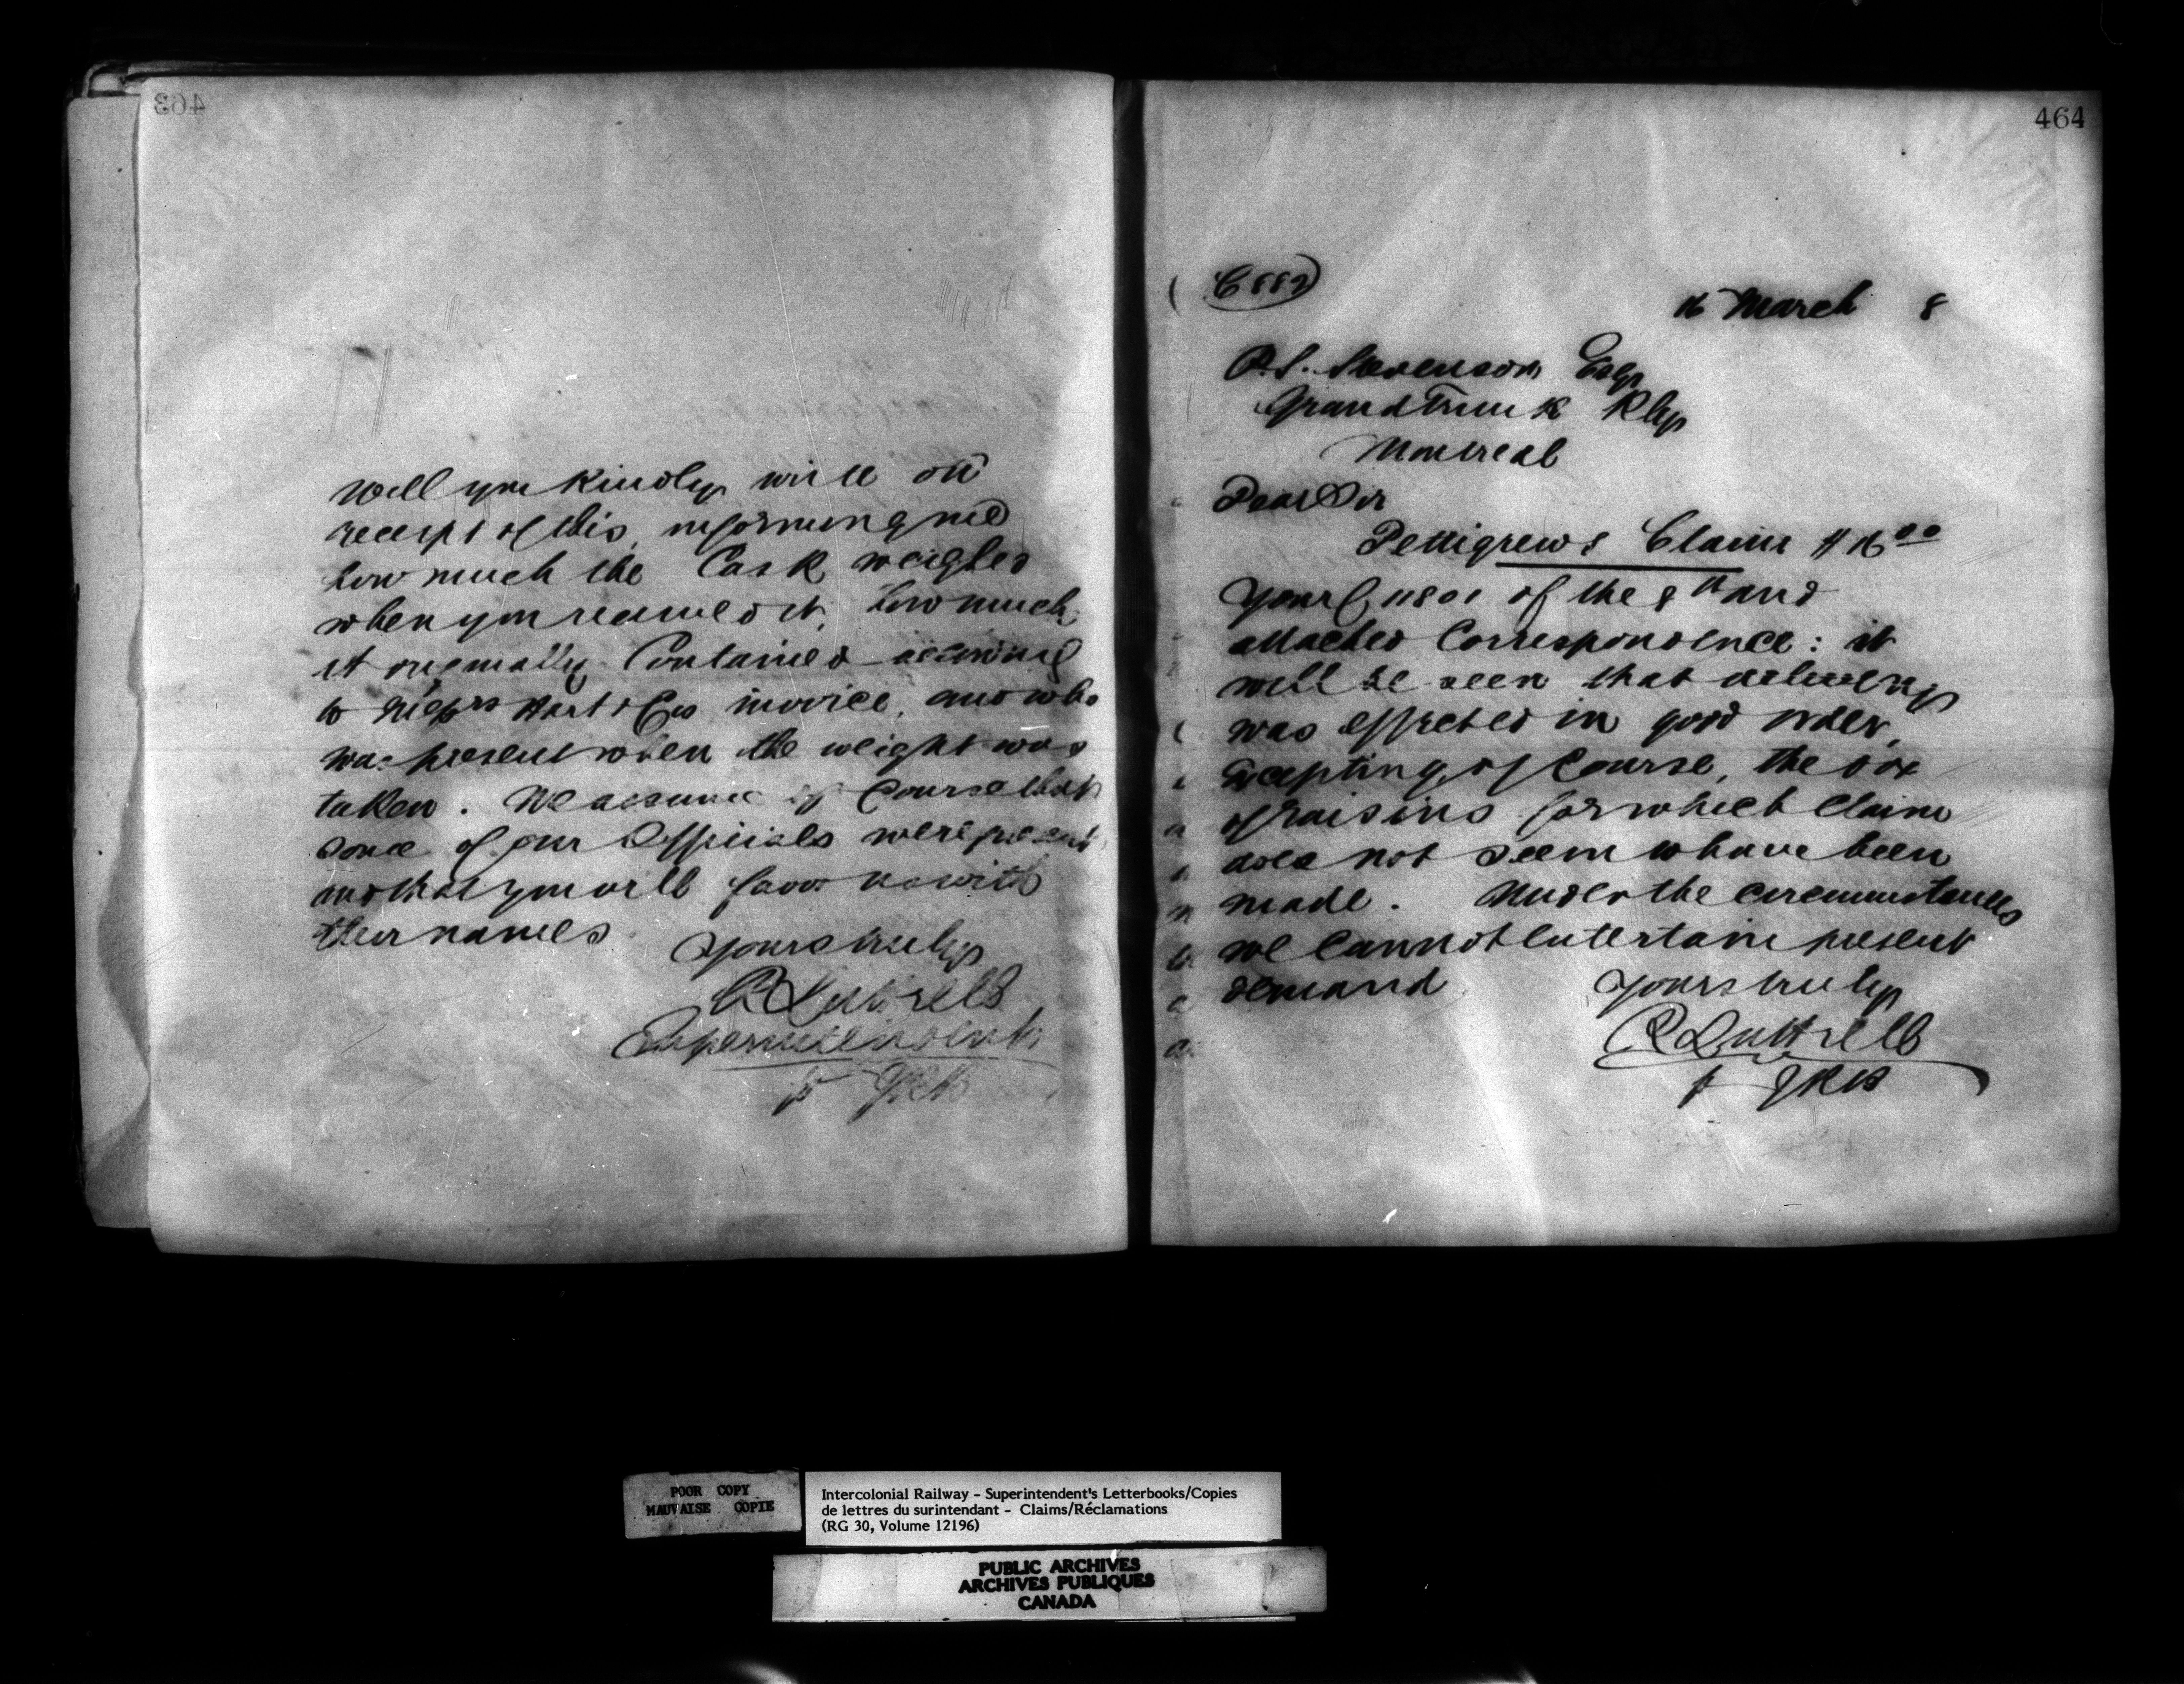 463
Will you kindly wire on
receipt of this, informing me
how much the Cask weighed
when you received it, how much
it originally Contained according
to Messrs Hart & Cos invoice, and who
was present when the weight was
taken. We assume of Course that
some of our Officials were present
and that you will favor us with
their names
Yours truly
R Luttrell
Superintendent
p
464
C 882
16 March 8
P.S. Stevenson Esqr
Grand Trunk Rly
Montreal
Dear Sir
Pettigrews Claim $16.00
Yours 11801 of the 8th and
attached Correspondence: it
will be seen that delivery
was effected in good order,
Excepting, of Course, the box
of raisins for which Claim
does not seem to have been
made. Under the circumstances
we Cannot Entertain present
demand
Yours truly
R Luttrell
p
POOR COPY
MAUVAISE COPIE
Intercolonial Railway - Superintendent's Letterbooks/Copies
de lettres du surintendant - Claims/Réclamations
(RG 30, Volume 12196)
PUBLIC ARCHIVES
ARCHIVES PUBLIQUES
CANADA